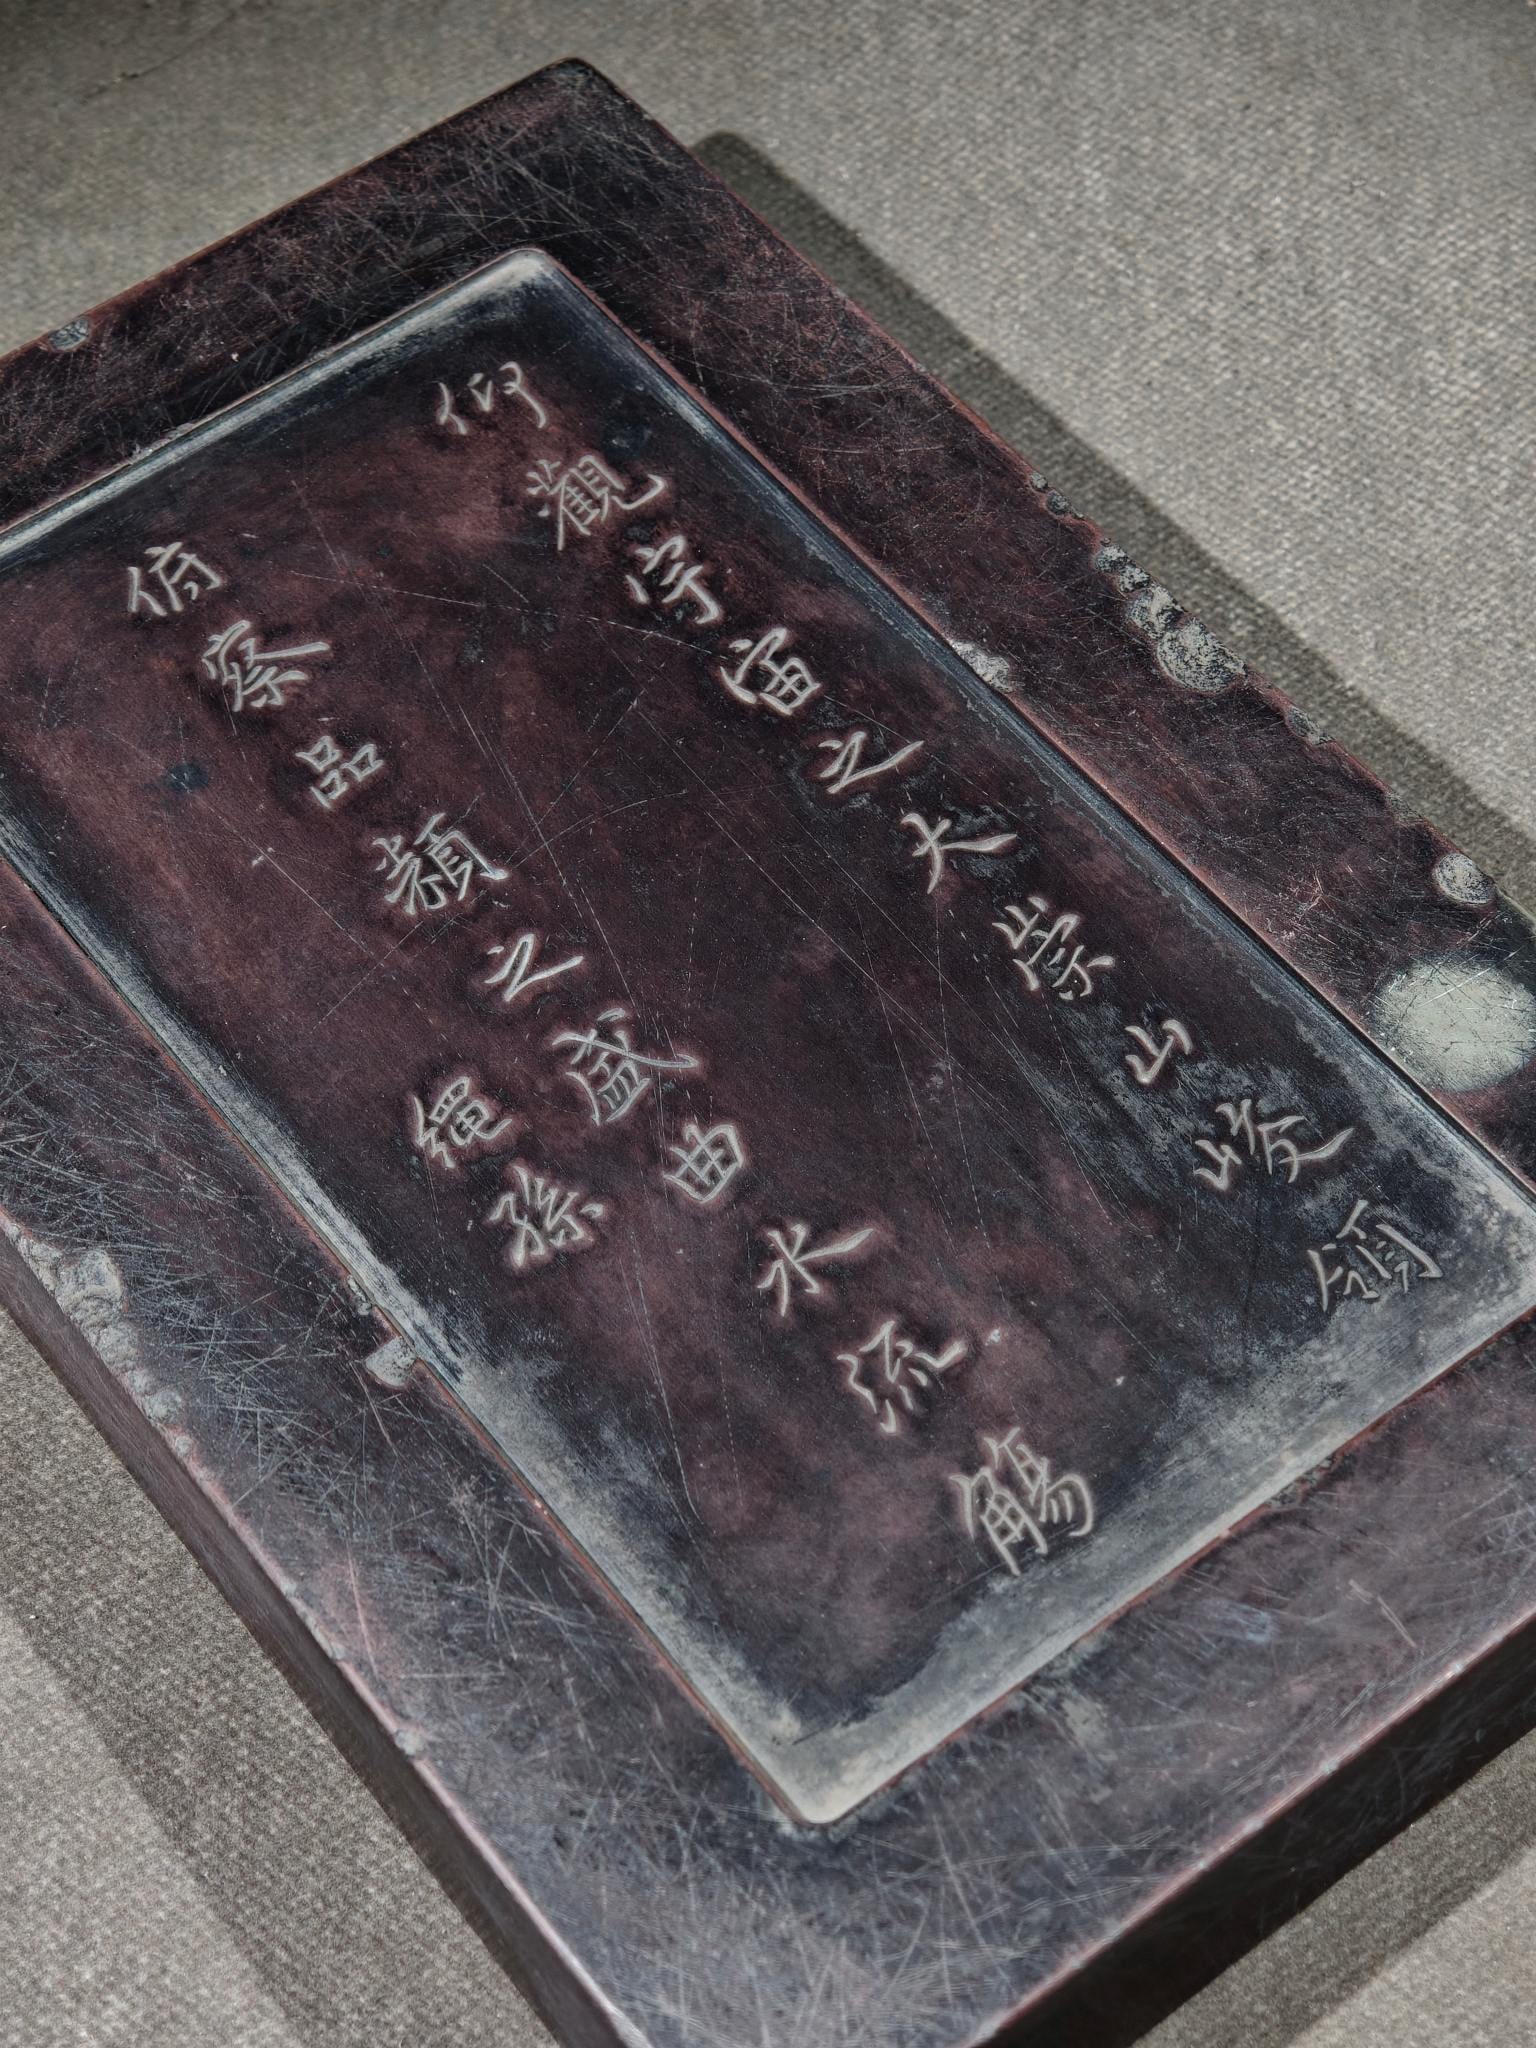 仰觀宇宙之大崇山峻領
俯察品類之盛曲水流觴
繩孫